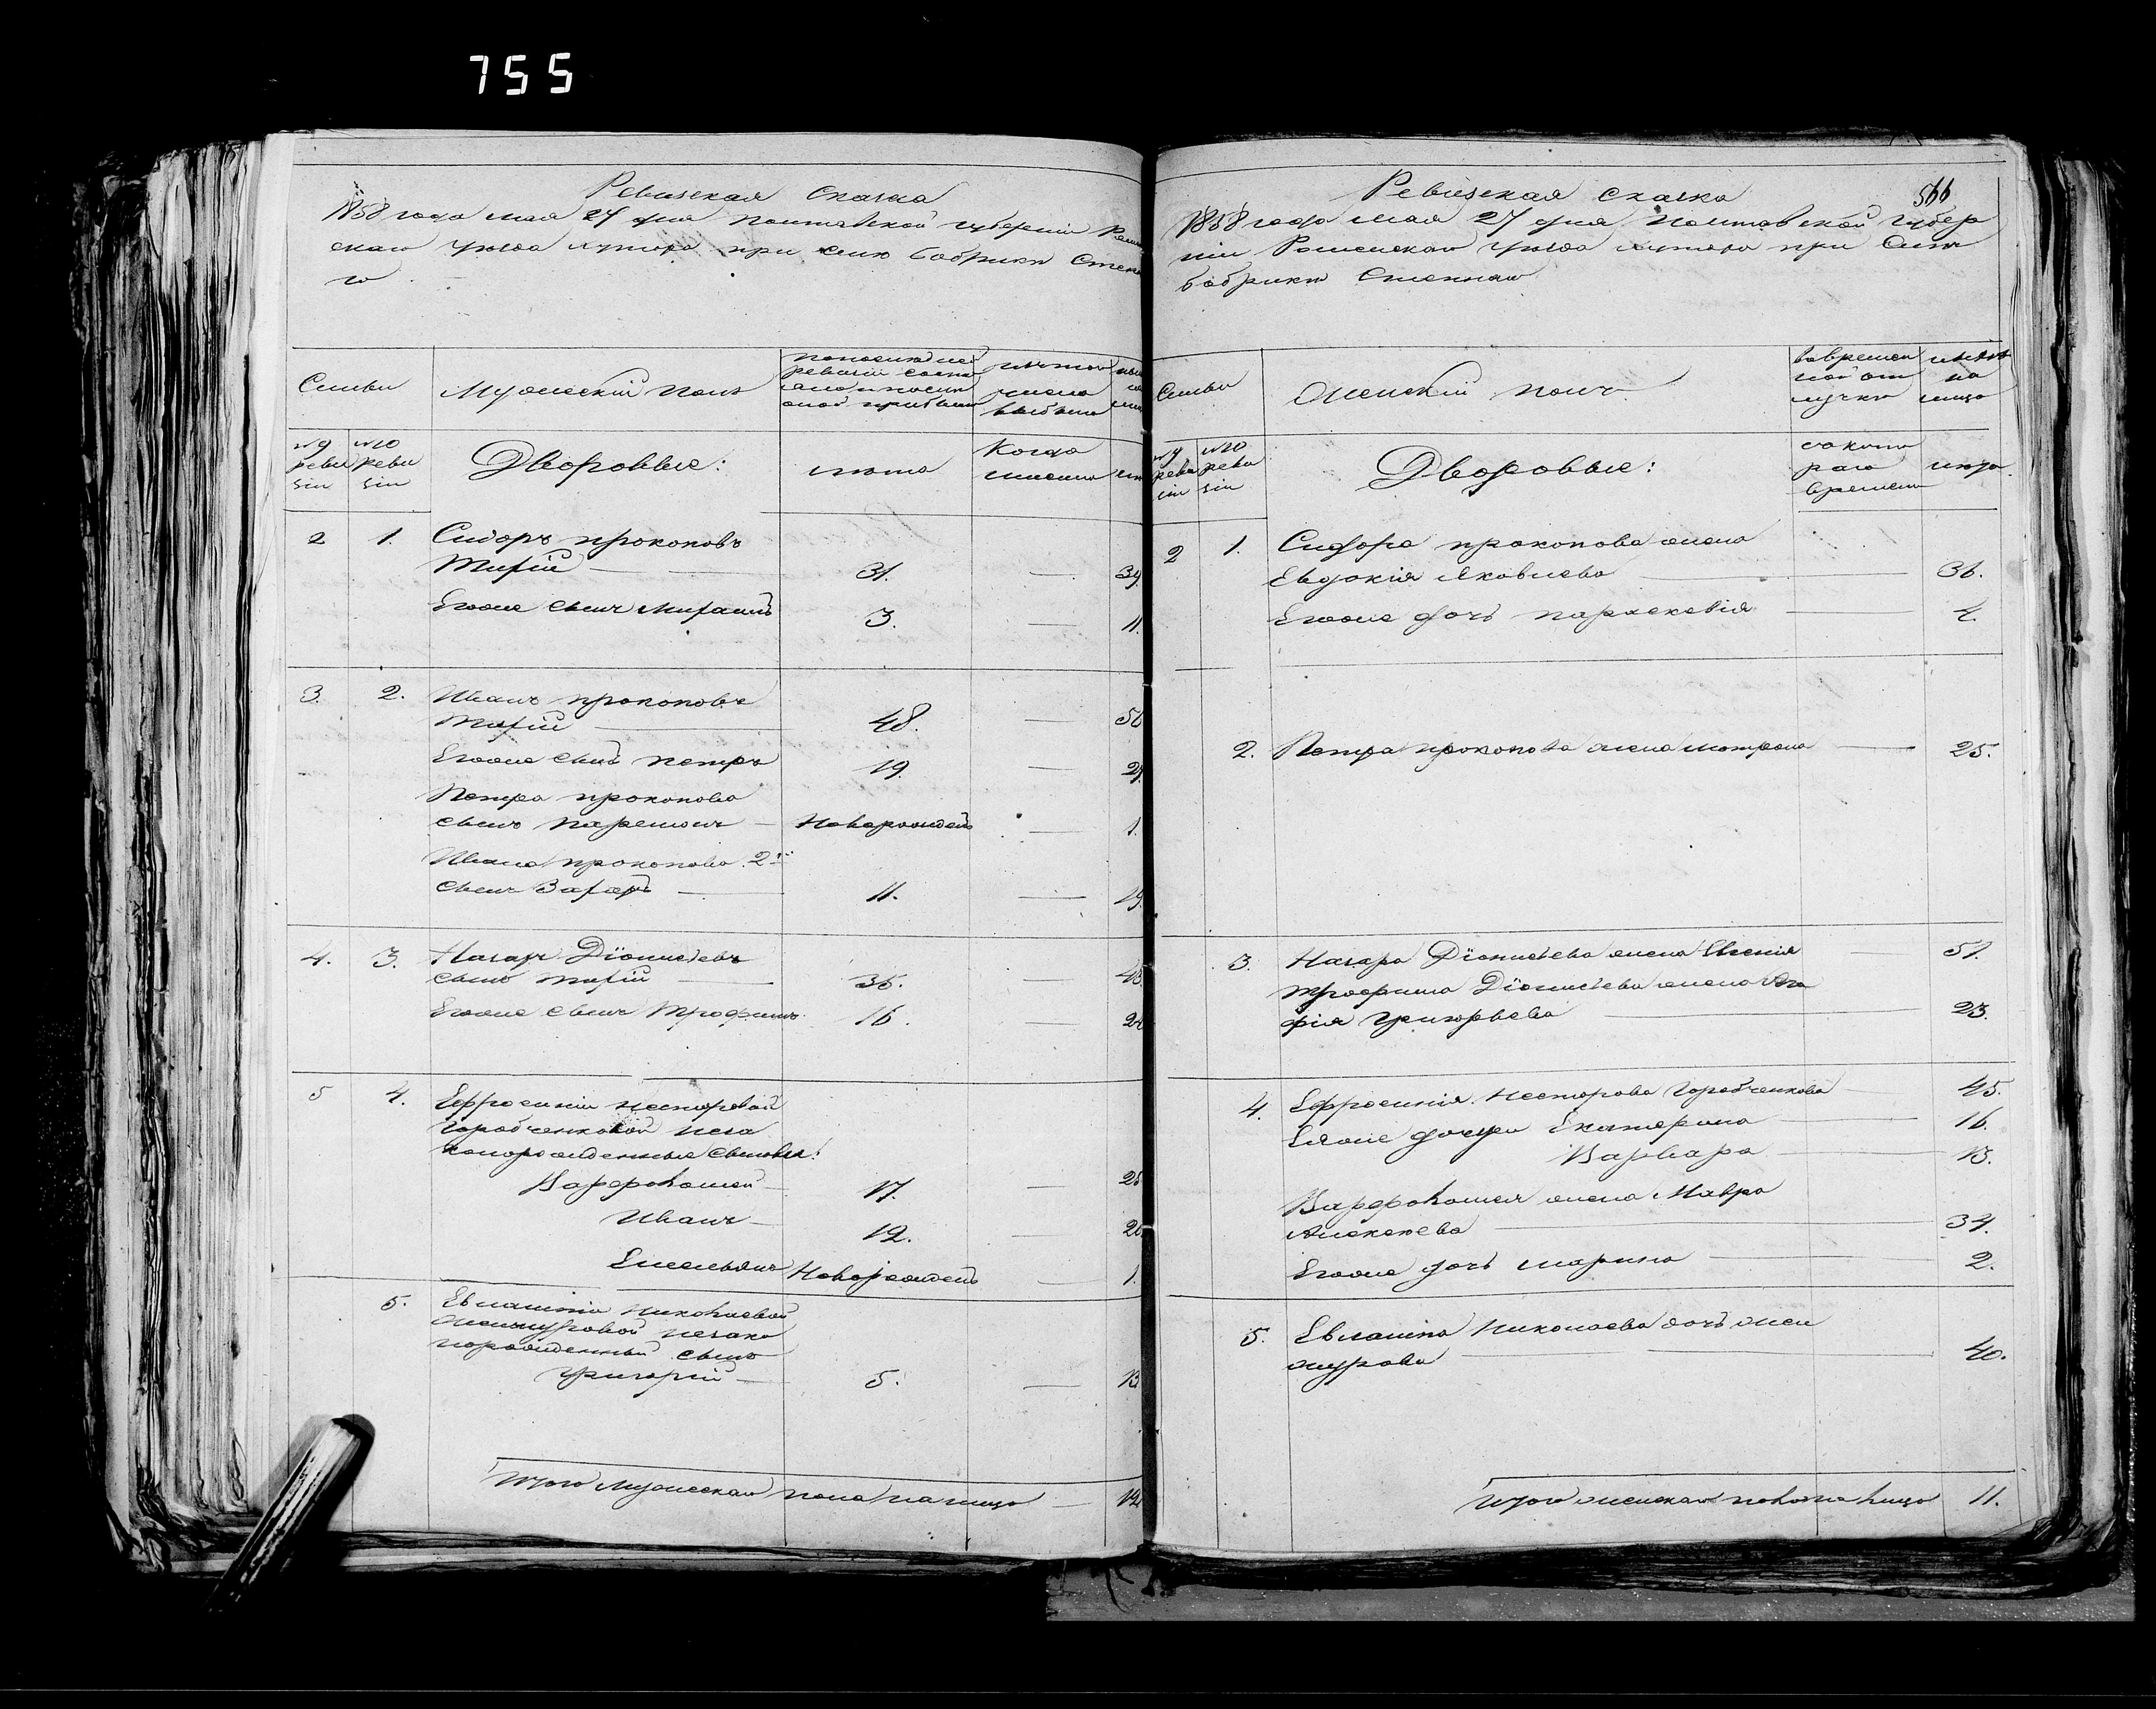 755
Ревизская Сказка
1858 года мая 27 дня Полтавской губерніи
скаго уезда хутора при селе бобрики
го
Семьи
Мужескій полъ
№ 9 ревизіи
№ 10 ревизіи
Дворовые:
лета
Когда имянно
2 1. Сидоръ прокоповъ
Тихій — 31. — 39.
Егоже сынъ Михаилъ 3. — 11.
3. 2. Иванъ прокоповъ
Тихій — 48. —
Егоже сынъ петръ 19. — 27.
Петра прокопова
сынъ — Новорожденъ — 1.
Ивана прокопова 2й
сынъ Захаръ — 11. — 19.
4. 3. Назаръ Діонисіевъ
сынъ тихій — 35. — 43.
Егоже сынъ Трофимъ 16. — 24
5 4. Ефросиніи несторовой
Горобченковой неза
конорожденные сыновья:
Варфоломей — 17. — 25
Иванъ — 12. — 20.
Емельянъ Новорожденъ — 1.
5. Евлампіи николаевой
незако
норожденный сынъ
Григорій — 5. — 13
Итого мужескаго пола на лицо — 12
Ревизская сказка
566
1858 года мая 27 дня Полтавской Губер
ніи Роменскаго уезда хутора при Селе
бобрике
Семьи
Женскій полъ
во времен
ной от
лучке
на
лицо
№ 9 ревизіи
№ 10 ревизіи
Дворовые:
съ кото
раго
времени
лета
2 1. Сидора прокопова жена
Евдокія Яковлева — 36.
Егоже дочь параскевія — 4.
2. Петра прокопова жена матрона — 25.
3. Назара Діонисіева жена Евгенія — 51.
Трофима Діонисіева жена Ага
фія Григорьева — 23.
4. Ефросинія Несторова Горобченкова 45.
Еяже дочери Екатерина — 16.
Варвара — 13.
Варфоломея жена Мавра
Алексеева — 34.
Егоже дочь марина — 2.
5. Евлампія Николаева дочь
— 40.
Итого женскаго пола на лицо 11.